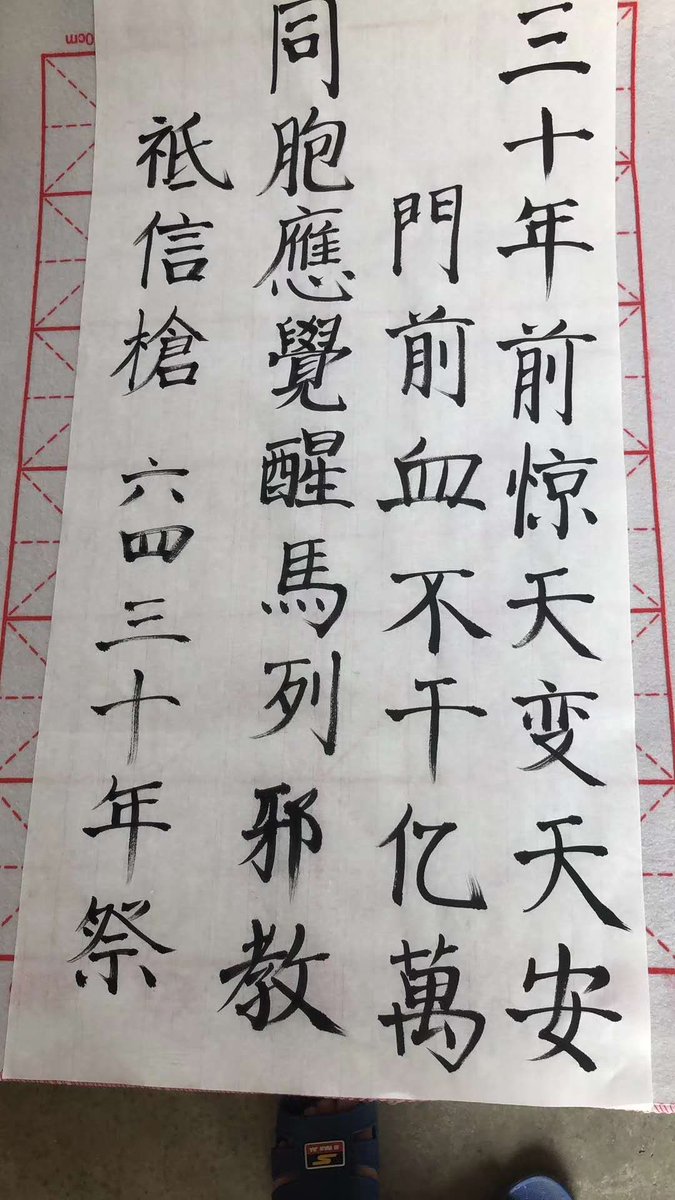 三十年前惊天变天安
門前血不干亿萬
同胞應覺醒馬列邪教
祗信槍 六四三十年祭
0cm